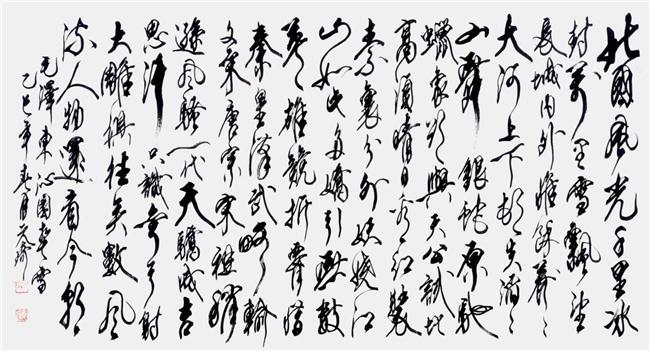 北國風光千里冰
封萬里雪飄望
長城內外惟餘莽〻
大河上下頓失滔〻
山舞銀蛇原馳
蠟象欲與天公試比
高須晴日看紅裝
素裹分外妖嬈江
山如此多嬌引無數
英雄競折腰惜
秦皇漢武略輸
文采唐宗宋祖稍
遜風騷一代天驕成吉
思汗只識彎弓射
大雕俱往矣數風
流人物還看今朝
毛澤東沁園春雪
乙巳年春月